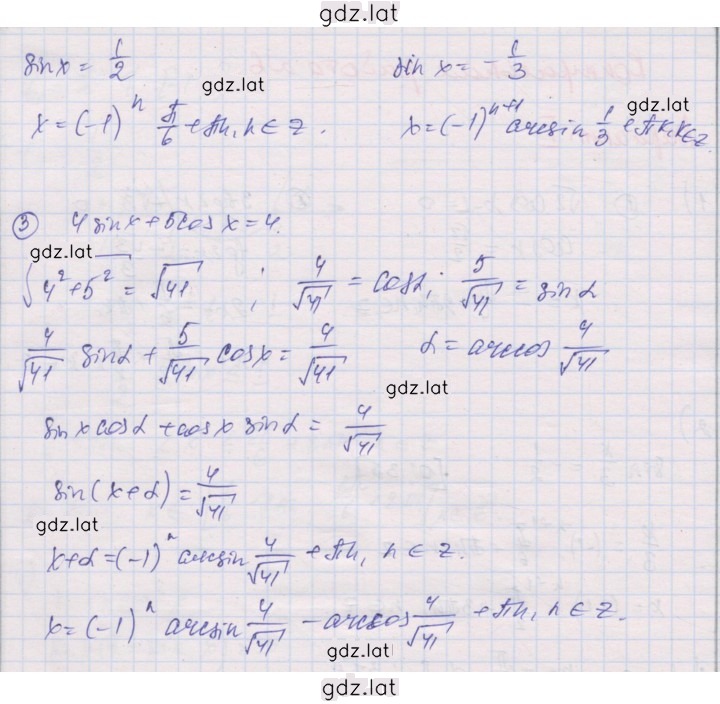 gdz.lat
sin x = 1/2      sin x = -1/3
gdz.lat
gdz.lat
x = (-1)^n π/6 + πn, n ∈ Z.      x = (-1)^(n+1) arcsin 1/3 + πk, k ∈ Z.
③ 4 sin x + 5 cos x = 4.
gdz.lat
√(4² + 5²) = √41 ; 4/√41 = cos α ; 5/√41 = sin α
4/√41 sin α + 5/√41 cos x = 4/√41      α = arccos 4/√41
gdz.lat
sin x cos α + cos x sin α = 4/√41
sin(x + α) = 4/√41
gdz.lat
x + α = (-1)^n arcsin 4/√41 + πn, n ∈ Z.
x = (-1)^n arcsin 4/√41 - arccos 4/√41 + πn, n ∈ Z.
gdz.lat
gdz.lat